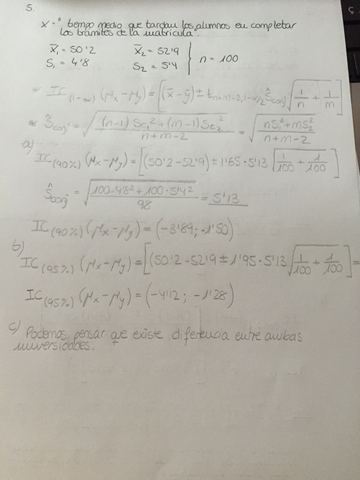 5.
X = "tiempo medio que tardan los alumnos en completar
los trámites de la matrícula".
x̄₁ = 50'2   x̄₂ = 52'9
S₁ = 4'8   S₂ = 5'4   } n = 100
IC(1-α) (μx-μy) = [(x̄-ȳ) ± t n+m-2, 1-α/2 · Ŝconj √(1/n + 1/m)]
Ŝconj = √(((n-1) Sc₁² + (m-1) Sc₂²)/(n+m-2)) = √((nS₁² + mS₂²)/(n+m-2))
a)
IC(90%) (μx-μy) = [(50'2-52'9) ± 1'65 · 5'13 √(1/100 + 1/100)]
Ŝconj = √((100·4'8² + 100·5'4²)/98) = 5'13
IC(90%) (μx-μy) = (-3'89; -1'50)
b)
IC(95%) (μx-μy) = [(50'2-52'9 ± 1'95 · 5'13 √(1/100 + 1/100)] =
IC(95%) (μx-μy) = (-4'12; -1'28)
c) Podemos pensar que existe diferencia entre ambas
universidades.